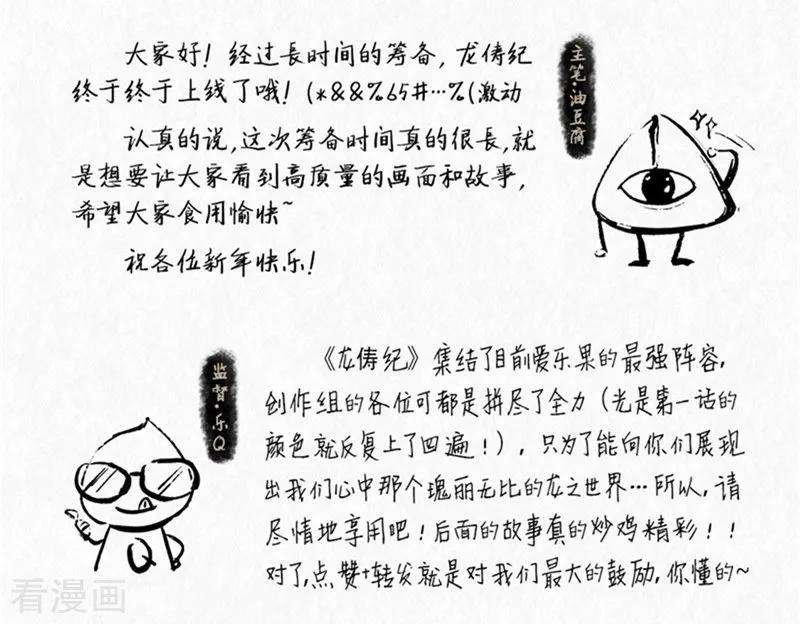 大家好！经过長时间的筹备，龙俦纪
终于终于上线了哦！(*&&%65#…%(激动
认真的说，这次筹备时间真的很長，就
是想要让大家看到高质量的画面和故事，
希望大家食用愉快~
祝各位新年快乐！
主笔·油豆腐
监督·乐Q
《龙俦纪》集结了目前爱乐果的最强阵容，
创作组的各位可都是拼尽了全力（光是第一话的
颜色就反复上了四遍！），只为了能向你们展现
出我们心中那个瑰丽无比的龙之世界…所以，请
尽情地享用吧！后面的故事真的炒鸡精彩！！
对了，点赞+转发就是对我们最大的鼓励，你懂的~
Q
看漫画